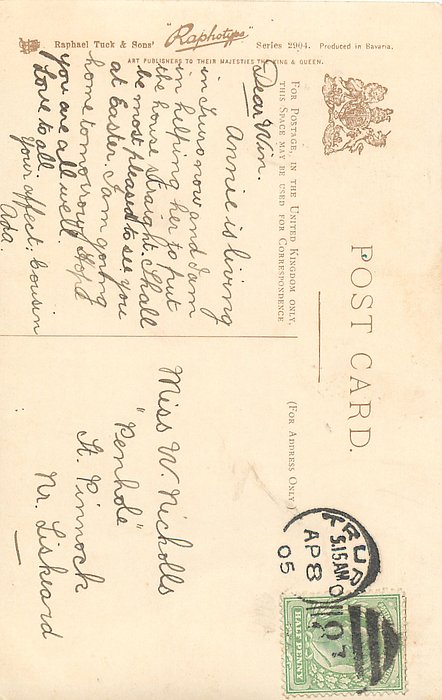 Raphael Tuck & Sons' "Raphotype" Series 2904. Produced in Bavaria.
ART PUBLISHERS TO THEIR MAJESTIES THE KING & QUEEN.
POST CARD.
FOR POSTAGE, IN THE UNITED KINGDOM ONLY,
THIS SPACE MAY BE USED FOR CORRESPONDENCE
(FOR ADDRESS ONLY)
Dear Win.
Annie is living
in Truro now and I am
in helping her to put
the house straight. Shall
be most pleased to see you
at Easter. I am going
home tomorrow. Hope
you are all well.
Love to all.
Your affect. cousin
Ada.
Miss W. Nicholls
"Penhole"
St. Pinnock
Nr. Liskeard
TRURO
5.15AM
AP 8
05
HALF PENNY